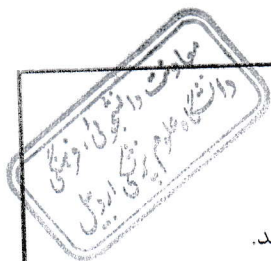 معاونت دانشجویی، فرهنگی
دانشگاه علوم پزشکی اردبیل
د.